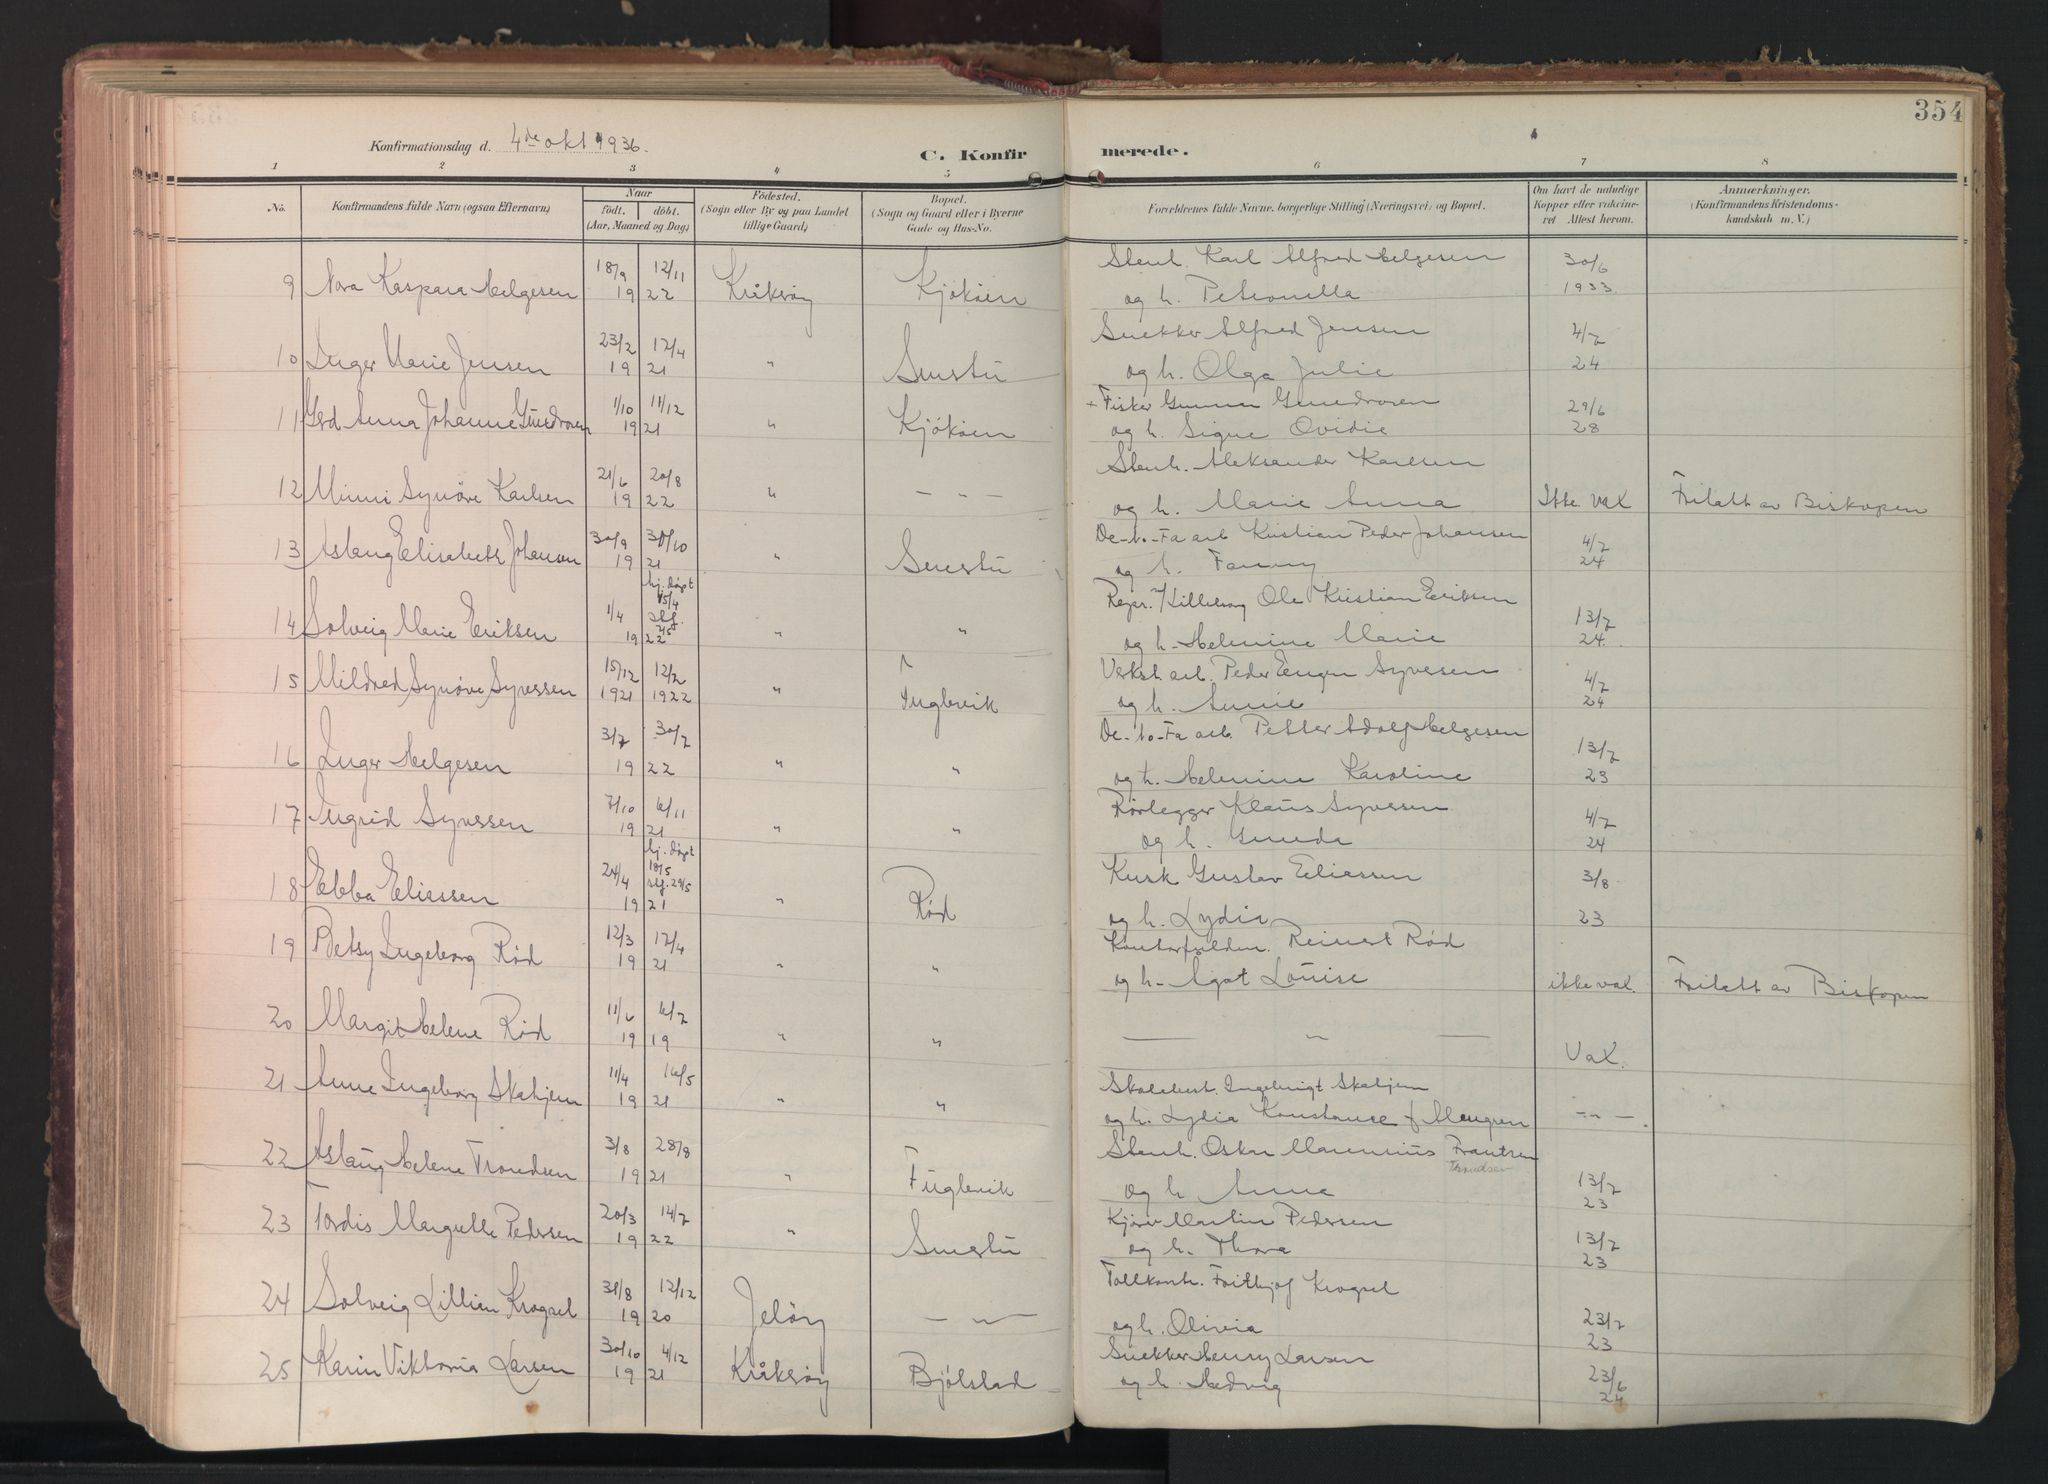 354
Konfirmationsdag d. 4de okt 1936.
C. Konfirmerede.
1 2 3 4 5 6 7 8
No. Konfirmandens fulde Navn (ogsaa Efternavn) Naar født. døbt. (Aar, Maaned og Dag) Fødested. (Sogn eller By og paa Landet tillige Gaard) Bopæl. (Sogn og Gaard eller i Byerne Gade og Hus-No. Forældrenes fulde Navne, borgerlige Stilling (Næringsvei) og Bopæl. Om havt de naturlige Kopper eller vakcineret Attest herom. Anmærkninger. (Konfirmandens Kristendomskundskab m. V.)
9 Nora Kaspara Helgesen 18/9 12/11 19 22 Kråkerøy Kjøkøen Stenh. Karl Alfred Helgesen og h. Petronella 30/6 1933
10 Inger Marie Jensen 23/2 17/4 19 21 " Smertu Snekker Alfred Jensen og h. Olga Julie 4/7 24
11 Gerd Anna Johanne Gundrosen 1/10 11/12 19 21 " Kjøkøen + Fisker Gunnar Gundrosen og h. Signe Ovidie 29/6 28
12 Minni Synøve Karlsen 21/6 20/8 19 22 " — " — Stenh. Aleksander Karlsen og h. Marie Anna Ikke vax Fritatt av Biskopen
13 Aslaug Elisabeth Johansen 30/9 30/10 19 21 " Smertu De-no-Fa arb Kristian Peder Johansen og h. Fanny 4/7 24
14 Solveig Marie Eriksen 1/4 hj. døpt 15/4 stf. 2/5 19 22 " " Repr. v/Lilleborg Ole Kristian Eriksen og h. Helmine Marie 13/7 24
15 Mildred Synøve Syversen 15/12 12/2 1921 1922 " Fuglevik Verkst arb. Peder Eugen Syversen og h. Annie 4/7 24
16 Inger Helgesen 3/7 30/7 19 22 " " De-no-Fa arb. Petter Adolf Helgesen og h. Helmine Karoline 13/7 23
17 Ingrid Syversen 7/10 6/11 19 21 " " Rørlegger Klaus Syversen og h. Gunda 4/7 24
18 Ebba Eliassen 24/4 hj. døpt 18/5 stf. 29/5 19 21 " Rød Kusk Gustav Eliassen og h. Lydia 3/8 23
19 Betsy Ingeborg Rød 12/3 17/4 19 21 " " Kontorfuldm. Reinert Rød og h. Agot Louise ikke vax. Fritatt av Biskopen
20 Margit Helene Rød 11/6 6/7 19 19 " " — " — Vax.
21 Anne Ingeborg Skahjem 11/4 16/5 19 21 " " Skolebest. Ingebrigt Skahjem og h. Lydia Konstanse f — " —
22 Aslaug Helene Trondsen 3/8 28/8 19 21 " Fuglevik Stenh. Oskar Marenius Frantsen Throndsen og h Anna 13/7 23
23 Tordis Margrethe Pedersen 20/3 14/7 19 22 " Smertu Kjører Martin Pedersen og h. Thora 13/7 23
24 Solveig Lillian Krogsel 31/8 12/12 19 20 Jeløy — " — Tollkontr. Frithjof Krogsel og h. Olivia 23/7 23
25 Karin Viktoria Larsen 30/10 4/12 19 21 Kråkerøy Bjølstad Snekker Henry Larsen og h. Hedvig 23/6 24